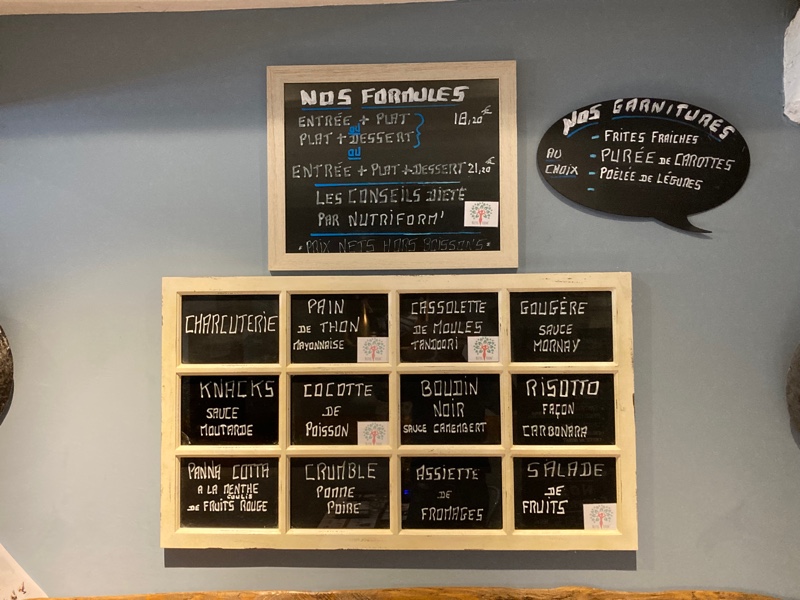 NOS FORMULES
ENTRÉE + PLAT
ou
PLAT + DESSERT
18,20€
ou
ENTRÉE + PLAT + DESSERT 21,20€
LES CONSEILS DIÉTÉ
PAR NUTRIFORM'
• PRIX NETS HORS BOISSONS •
NOS GARNITURES
AU
CHOIX
- FRITES FRAICHES
- PURÉE DE CAROTTES
- POÊLÉE DE LÉGUMES
-
CHARCUTERIE
PAIN
DE THON
MAYONNAISE
CASSOLETTE
DE MOULES
TANDOORI
GOUGÈRE
SAUCE
MORNAY
KNACKS
SAUCE
MOUTARDE
COCOTTE
DE
POISSON
BOUDIN
NOIR
SAUCE CAMEMBERT
RISOTTO
FAÇON
CARBONARA
PANNA COTTA
A LA MENTHE
COULIS
DE FRUITS ROUGE
CRUMBLE
POMME
POIRE
ASSIETTE
DE
FROMAGES
SALADE
DE
FRUITS